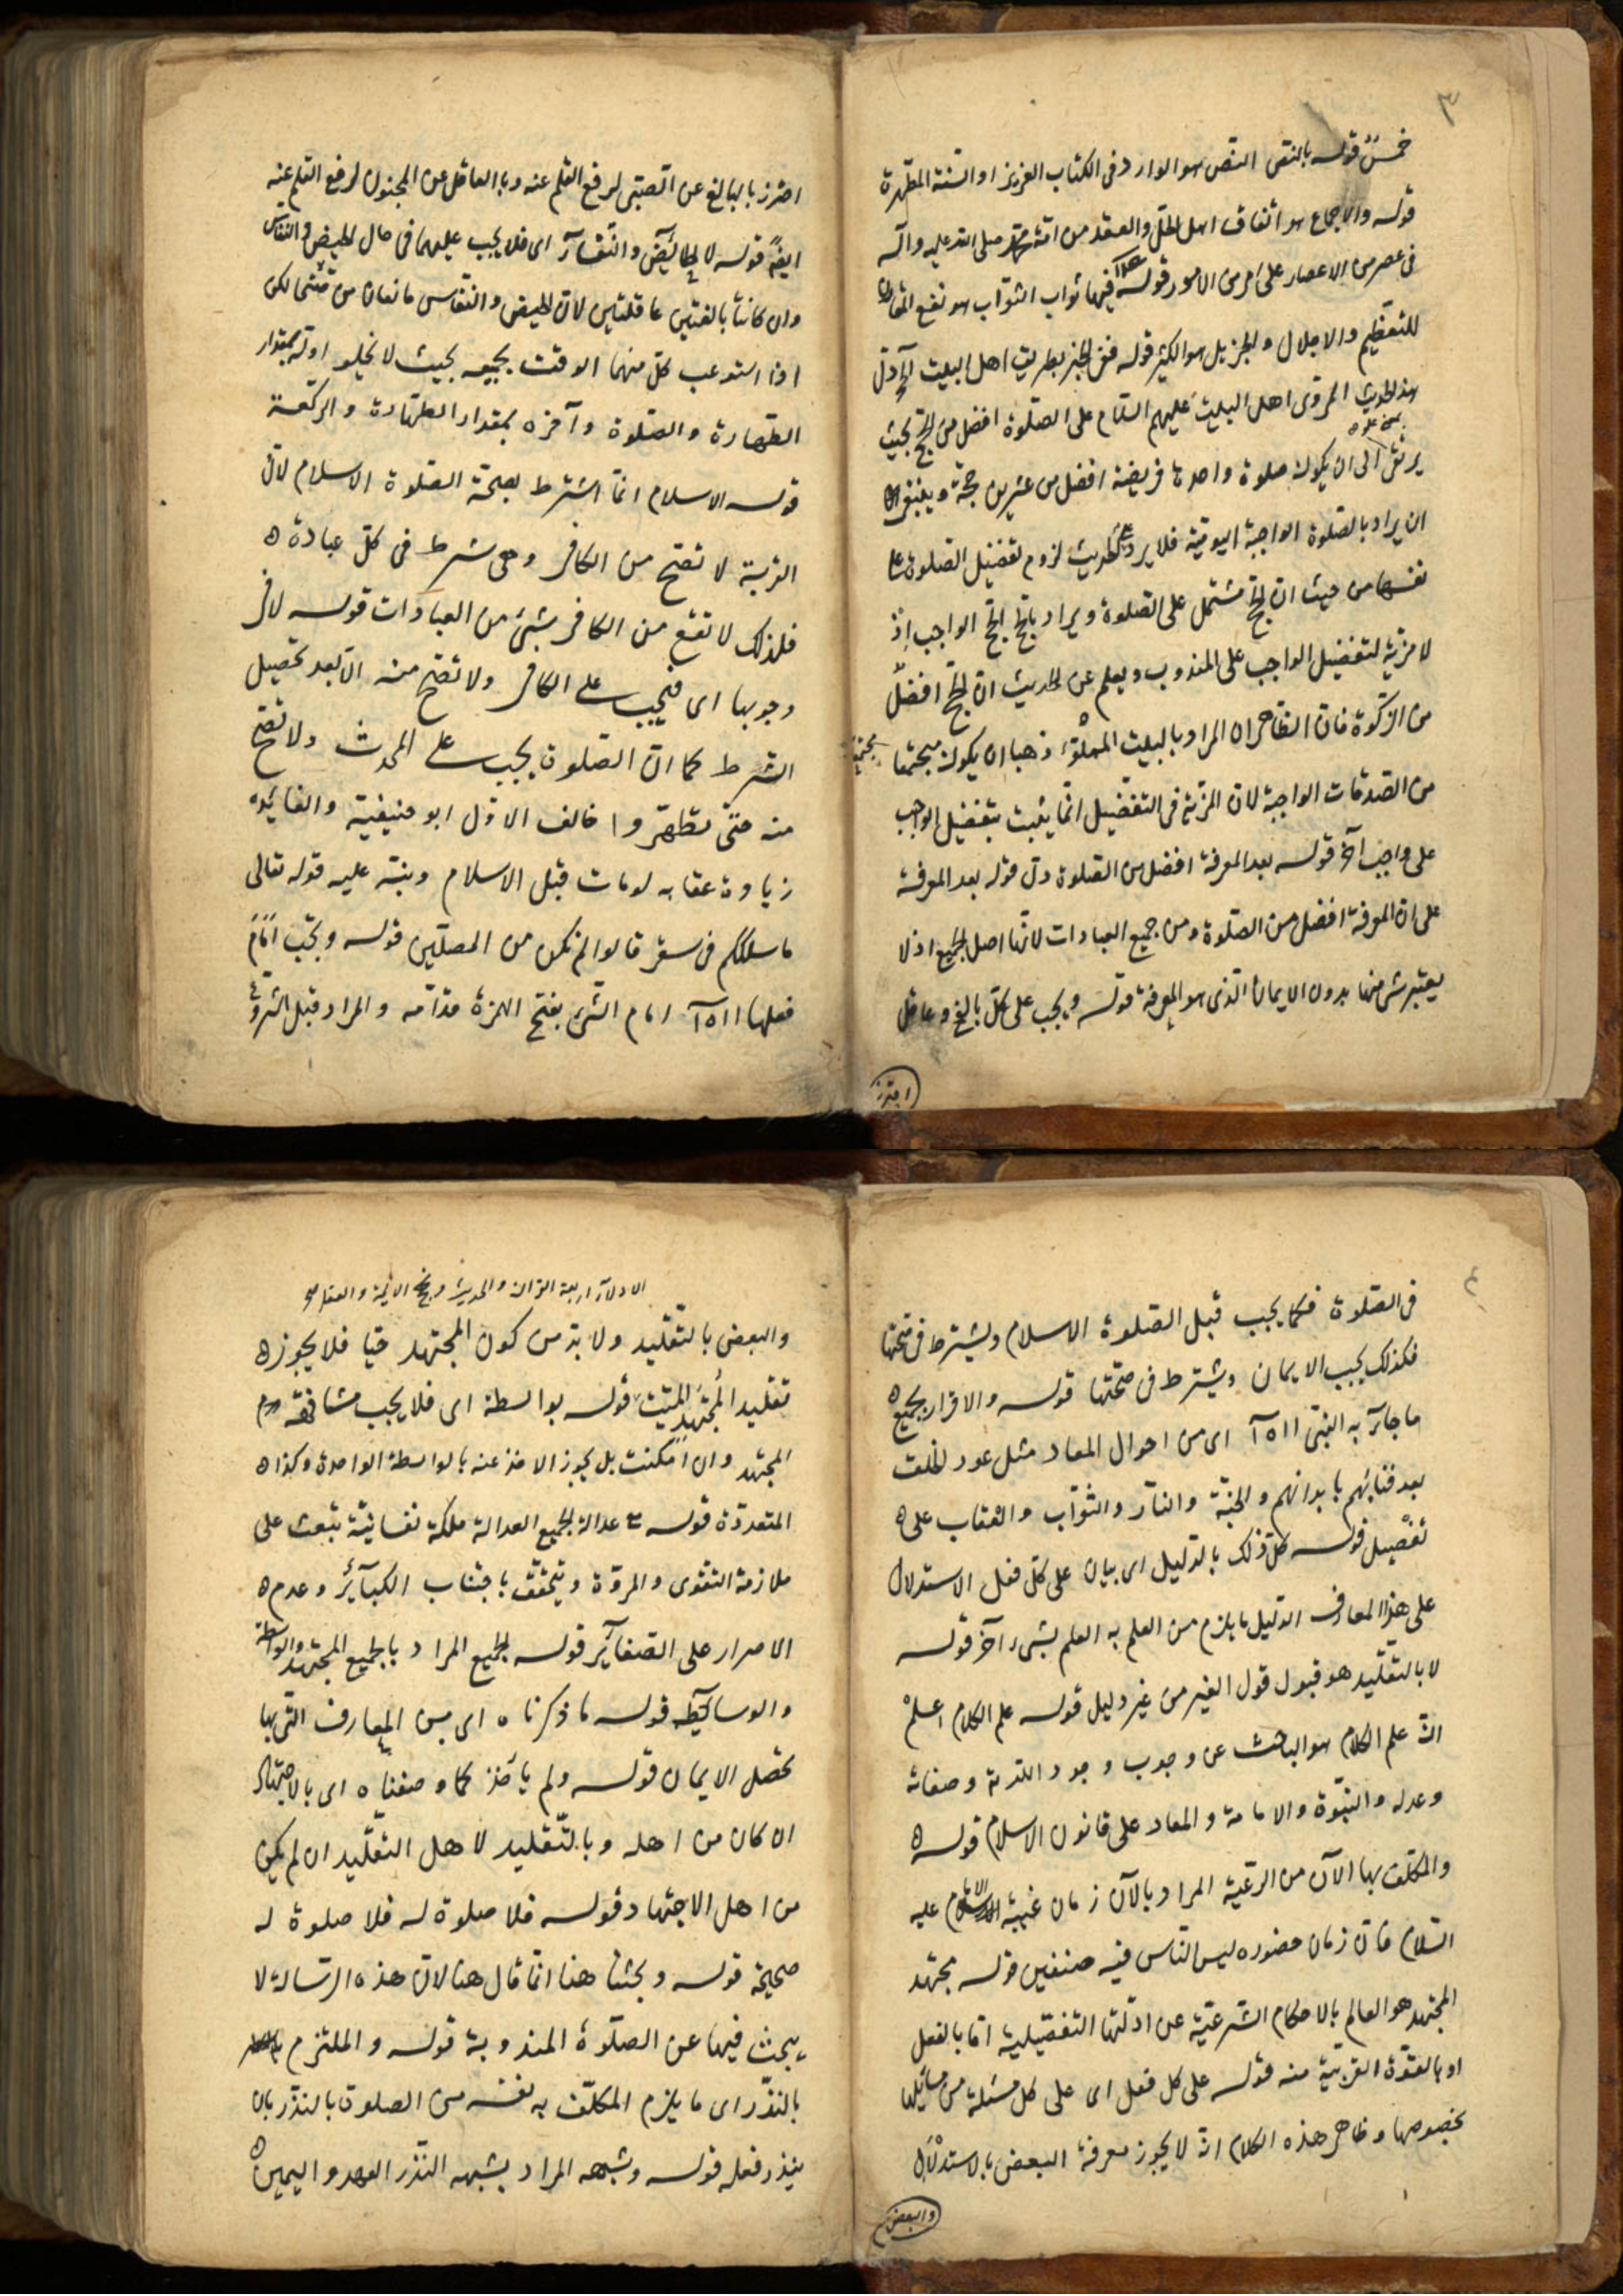 ٣
خمس قوله بالنص النص هو الوارد فى الكتاب العزيز او السنة المطهرة
قوله والاجماع هو اتفاق اهل الحل والعقد من امة محمد صلى الله عليه وآله
فى عصر من الاعصار على امر من الامور قوله فيها ثواب الثواب هو نفع
للتعظيم والاجلال والجزيل هو الكثير قوله فى الخبر بطريق اهل البيت آه دل
هذا الحديث المروى اهل البيت عليهم السلام على الصلوة افضل من الحج بحيث
يرتقى الى ان يكون صلوة واحدة فريضة افضل من عشرين حجة وينبغى
ان يراد بالصلوة الواجبة اليومية فلا يرد على الحديث لزوم تفضيل الصلوة على
نفسها من حيث ان الحج مشتمل على الصلوة ويراد بالحج الحج الواجب اذ
لا مزية لتفضيل الواجب على المندوب ويعلم عن الحديث ان الحج افضل
من الزكوة فان الظاهر ان المراد بالبيت المملوء ذهبا ان يكون مجتمعا
من الصدقات الواجبة لان المزية فى التفضيل انما يثبت بتفضيل الواجب
على واجب آخر قوله بعد المعرفة افضل من الصلوة دل قوله بعد المعرفة
على ان المعرفة افضل من الصلوة ومن جميع العبادات لانها اصل الجميع اذ لا
يعتبر شئ منها بدون الايمان الذى هو المعرفة قوله ويجب على كل بالغ وعاقل
احترز
احترز بالبالغ عن الصبى لرفع القلم عنه وبالعاقل عن المجنون لرفع القلم عنه
ايضا قوله لا الحائض والنفساء اى فلا يجب عليهما فى حال الحيض والنفاس
وان كانتا بالغتين عاقلتين لان الحيض والنفاس مانعان من لكن
اذا استوعب كل منهما الوقت بجميعه بحيث لا يخلو اوله بمقدار
الطهارة والصلوة وآخره بمقدار الطهارة والركعة
قوله الاسلام انما اشترط بصحة الصلوة الاسلام لان
القربة لا تصح من الكافر وهى شرط فى كل عبادة ه
فلذلك لا تقع من الكافر بشئ من العبادات قوله لا فى
وجوبها اى فيجب على الكافر ولا تصح منه الا بعد تحصيل
الشرط كما ان الصلوة يجب على المحدث ولا تصح
منه حتى يتطهر وا خالف الاول ابو حنيفية والفائدة
زيادة عقابه لو مات قبل الاسلام ونبه عليه قوله تعالى
ما سلككم فى سقر قالوا لم نكن من المصلين قوله ويجب امام
فعلها ااه آ امام الشئ بفتح الهمزة قدامه والمراد قبل الشروع
٤
فى الصلوة فكما يجب قبل الصلوة الاسلام ويشترط فى صحتها
فكذلك يجب الايمان ويشترط فى صحتها قوله والاقرار بجميع ه
ما جاء به النبى ااه آ اى من احوال المعاد مثل عود الخلق
بعد فنائهم بابدانهم والجنة والنار والثواب والعقاب على ه
تفصيل قوله كل ذلك بالدليل اى بيان على كل فعل الاستدلال
على هذا المعارف الدليل ما يلزم من العلم به العلم بشئ آخر قوله
لا بالتقليد هو قبول قول الغير من غير دليل قوله علم الكلام اعلم
ان علم الكلام هو الباحث عن وجوب وجود الله تع وصفاته
وعدله والنبوة والامامة والمعاد على قانون الاسلام قوله ه
والمكلف بها الآن من الرعية المراد بالآن زمان غيبة الامام عليه
السلام فان زمان حضوره ليس الناس فيه صنفين قوله مجتهد
المجتهد هو العالم بالاحكام الشرعية عن ادلتها التفصيلية اما بالفعل
او بالقوة القريبة منه قوله على كل فعل اى على كل مسئلة من مسائلها
بخصوصها وظاهر هذه الكلام انه لا يجوز معرفة البعض بالاستدلال
والبعض
الادلة اربعة القران والحديث و والعقل
والبعض بالتقليد ولا بد من كون المجتهد حيا فلا يجوز ه
تقليد المجتهد الميت قوله بواسطة اى فلا يجب مشافهة
المجتهد وان امكنت بل يجوز الاخذ عنه بالواسطة الواحدة وكذا ه
المتعددة قوله مع عدالة الجميع العدالة ملكة نفسانية تبعث على
ملازمة التقوى والمروة ويتحقق باجتناب الكبائر وعدم ه
الاصرار على الصغاير قوله الجميع المراد بالجميع المجتهد والواسطة
والوسائط قوله ما ذكرناه اى من المعارف التى بها
يحصل الايمان قوله ولم ياخذ كما وصفناه اى بالاجتهاد
ان كان من اهله وبالتقليد لاهل التقليد ان لم يكن
من اهل الاجتهاد قوله فلا صلوة له فلا صلوة له
صحيحة قوله وبحثنا هنا انما قال هنا لان هذه الرسالة لا
يبحث فيها عن الصلوة المندوبة قوله والملتزم
بالنذر اى ما يلزم المكلف به نفسه من الصلوة بالنذر بان
ينذر فعله قوله وشبهه المراد بشبهه النذر العهد واليمين ه